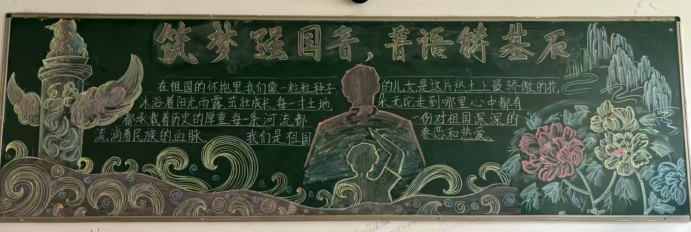 筑梦强国音,普语铸基石
在祖国的怀抱里我们像一粒粒种子
沐浴着阳光雨露茁壮成长每一寸土地
都承载着历史的厚重每一条河流都
流淌着民族的血脉 我们是祖国
的儿女是这片热土上最骄傲的花
朵无论走到哪里心中都有
一份对祖国深深的
眷恋和热爱